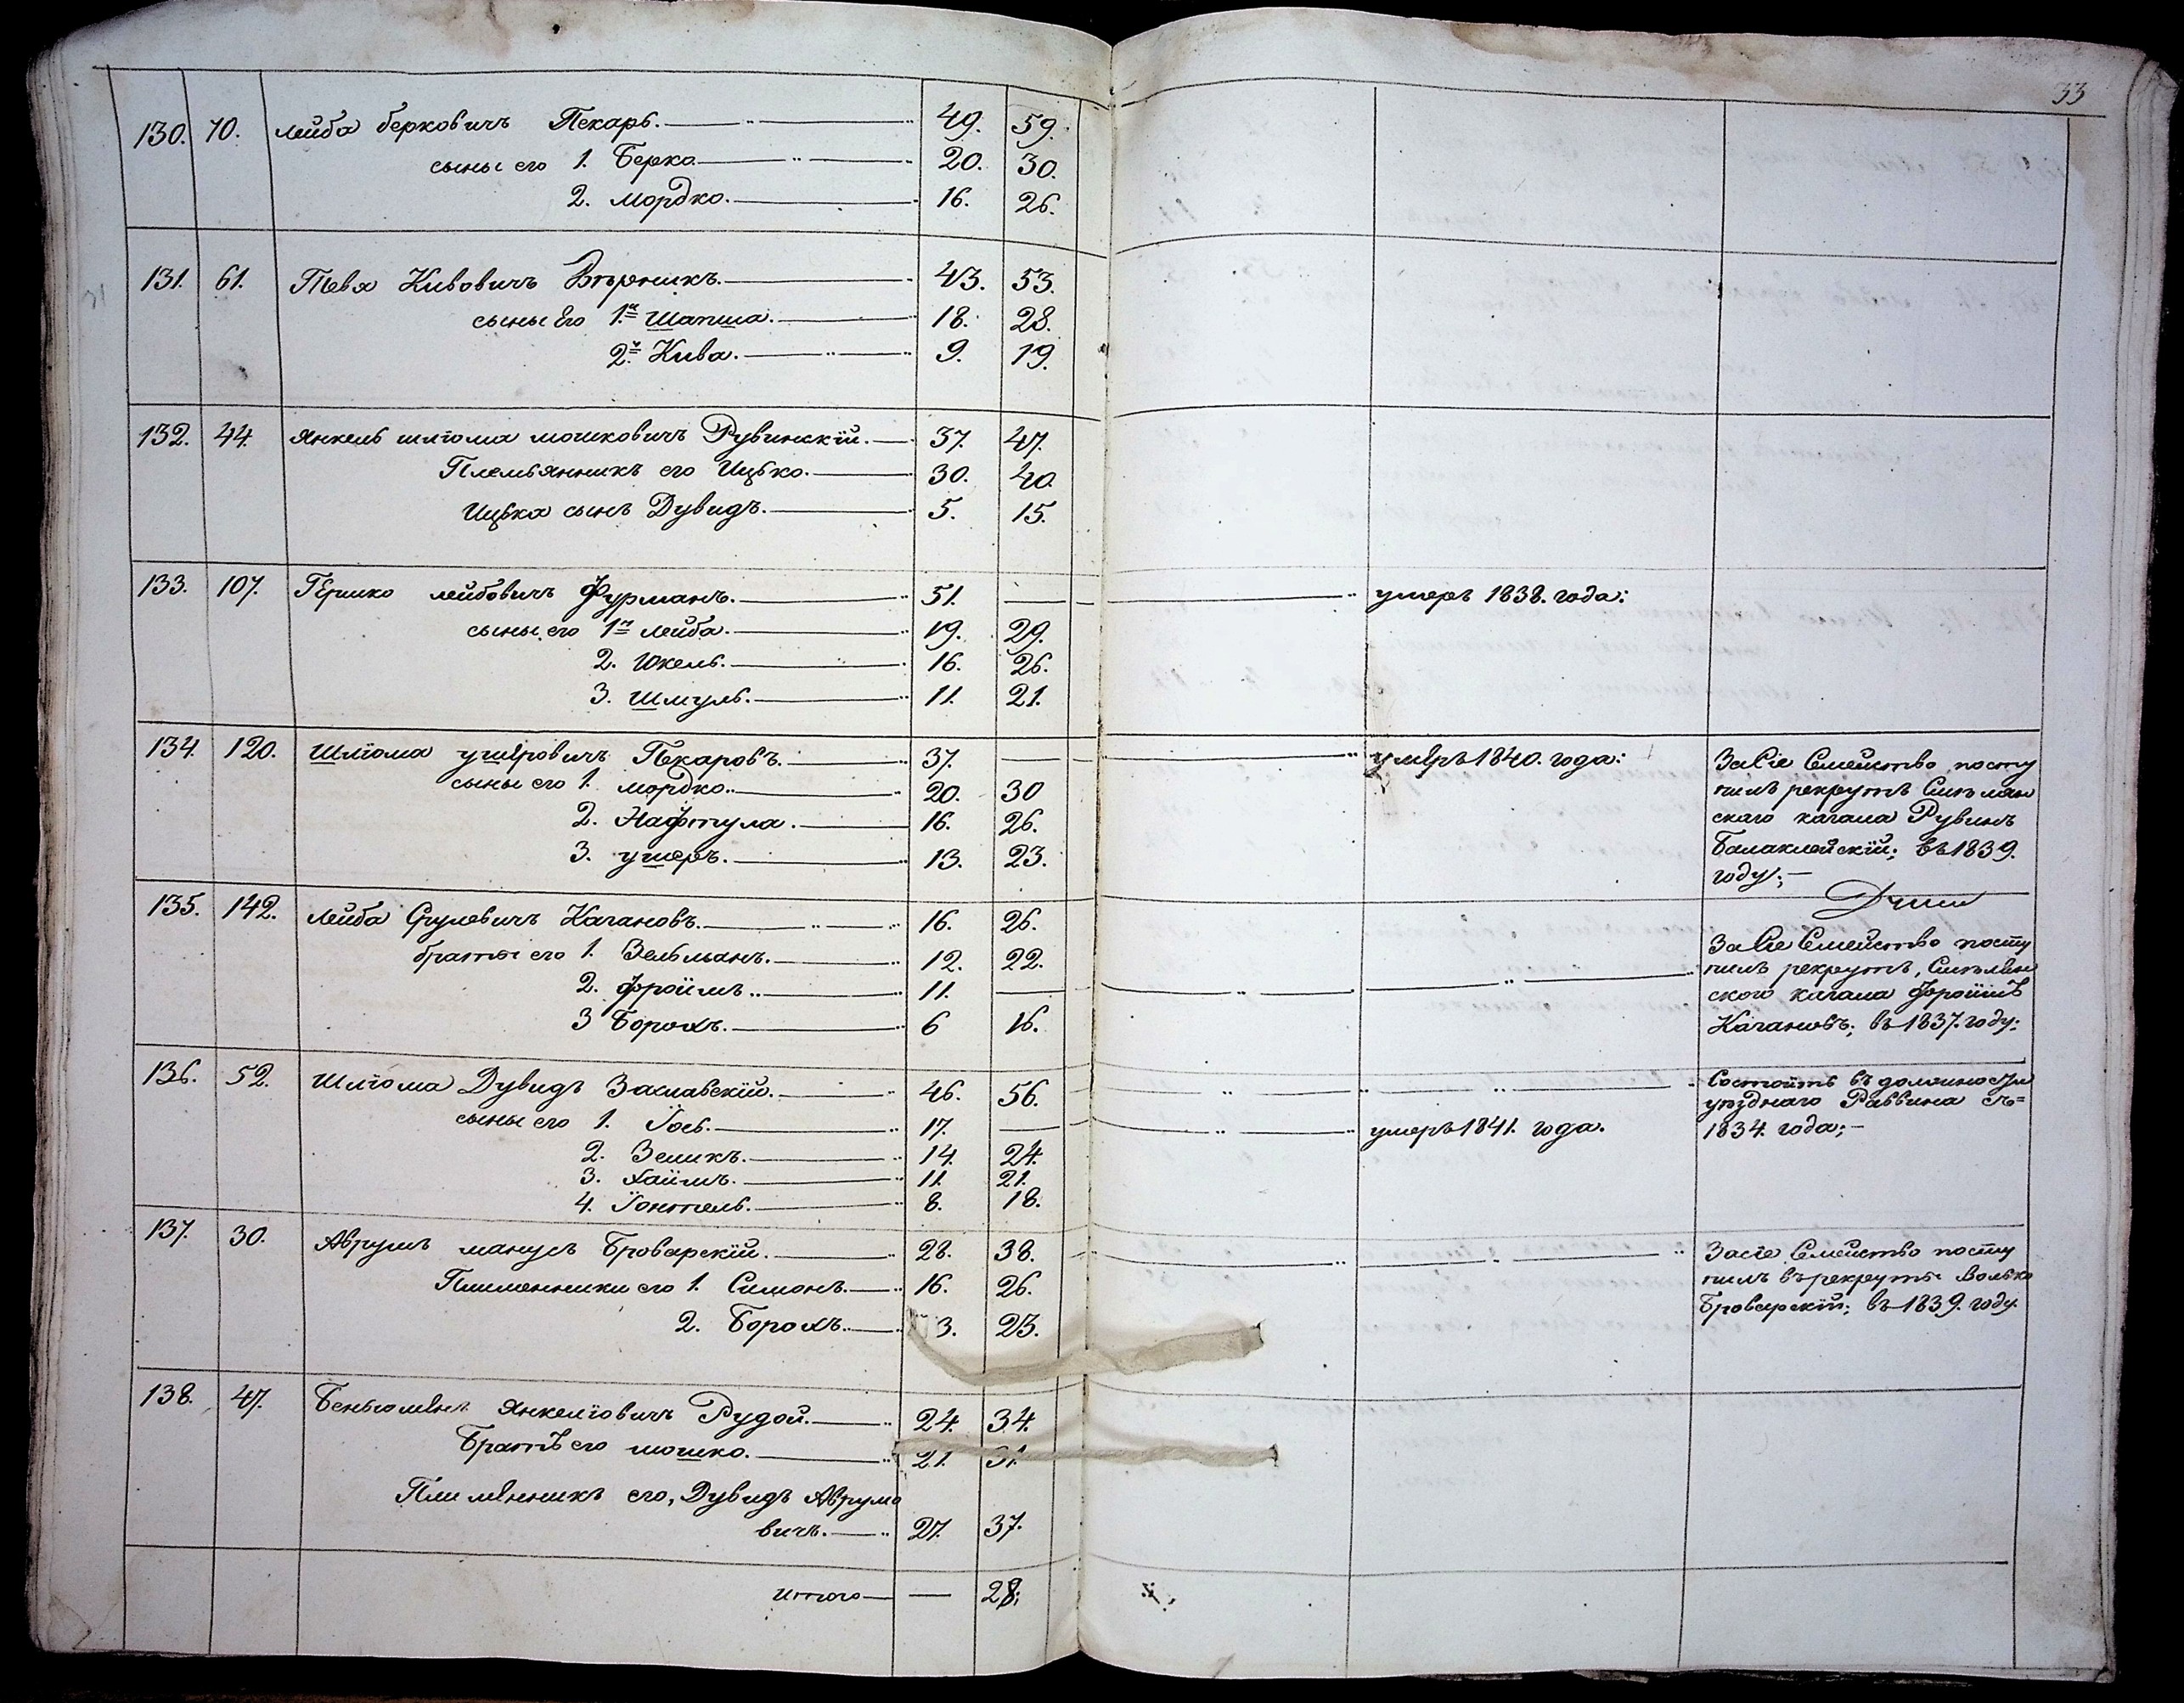 33
130. 70. Лейба Берковичъ Пекарь. 49. 59.
сыны его 1. Берко 20. 30.
2. Мордко. 16. 26.
131. 61. Тевя Кивовичъ Вѣрникъ. 43. 53.
сыны Его 1.й Шапша. 18. 28.
2.й Кива. 9. 19.
132. 44. Янкель шліома мошковичъ Рувинскій. 37. 47.
Племьянникъ его Ицько. 30. 40.
Ицька сынъ Дувидъ. 5. 15.
133. 107. Гершко лейбовичъ Фурманъ. 51. — умеръ 1838. года:
сыны его 1й лейба. 19. 29.
2. Юкель. 16. 26.
3. Шмуль. 11. 21.
134. 120. Шліома ушеровичъ Пекаровъ. 37. — умеръ 1840. года: За Сіе Семейство посту
сыны его 1. мордко. 20. 30 пилъ рекрутъ Смѣлян
2. Нафтула. 16. 26. скаго кагала Рувинъ
3. ушеръ. 13. 23. Балаклейскій; въ 1839.
году;
135. 142. Лейба Срулевичъ Кагановъ. 16. 26.
братья его 1. Зельманъ. 12. 22. За Сіе Семейство посту
2. фроимъ 11. — пилъ рекрутъ, Смѣлян
ского кагала фроимъ
3 Борохъ. 6 16. Кагановъ; въ 1837. году:
136. 52. Шліома Дувидъ Заславскій. 46. 56. Состоитъ въ должности
уѣзднаго Раввина съ=
сыны его 1. Іось. 17. — умеръ 1841. года. 1834. года;
2. Зеликъ. 14. 24.
3. Хаимъ. 11. 21.
4. Іонтель. 8. 18.
137. 30. Аврумъ манусъ Броварскій. 28. 38. За сіе Семейство посту
Плименники его 1. Симонъ. 16. 26. пилъ въ рекруты Волько
Броварскій; въ 1839. году.
2. Борохъ. 3. 23.
138. 47. Беньюминъ Янкеліовичъ Рудой. 24. 34.
Братъ его мошко. 21. 31.
Плименникъ его, Дувидъ Аврумо
вичъ. 27. 37.
итого — 28;